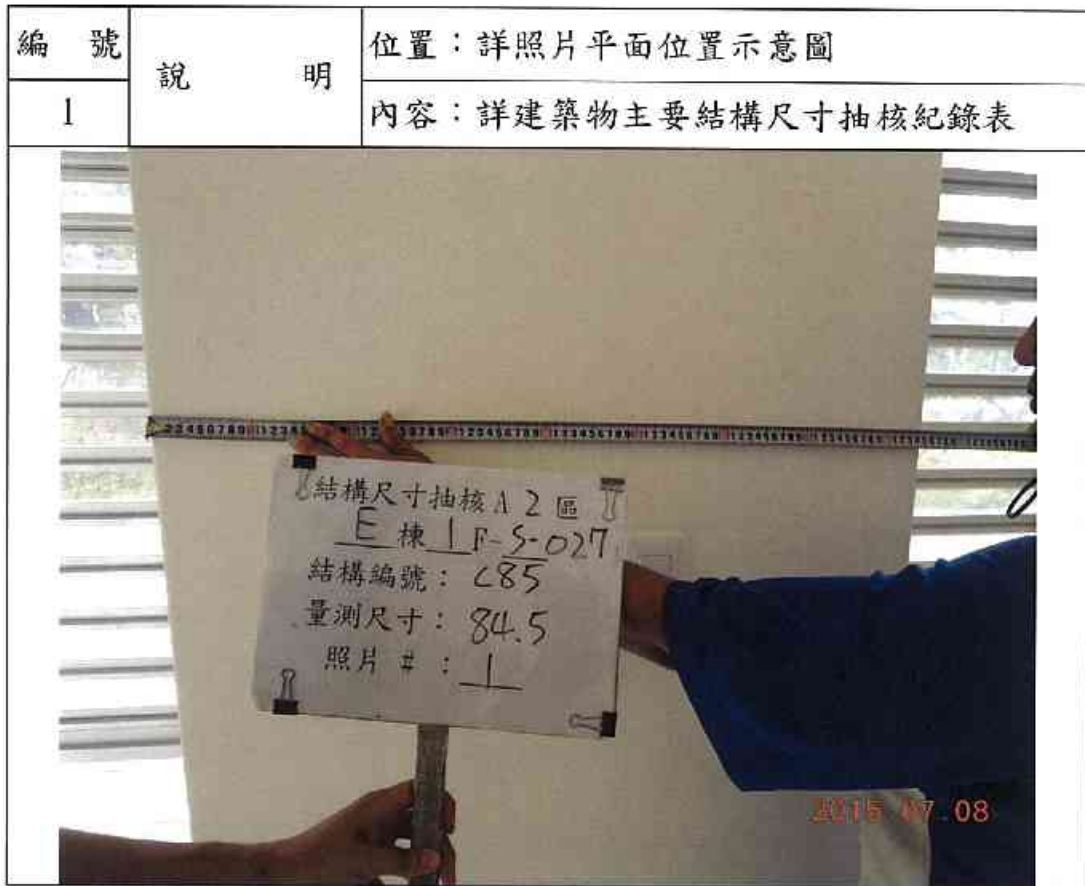 編 號
說 明
位置：詳照片平面位置示意圖
1
內容：詳建築物主要結構尺寸抽核紀錄表
結構尺寸抽核 A 2 區
E 棟 1 F-S-027
結構編號： C85
量測尺寸： 84.5
照片 # ： 1
2015 07.08